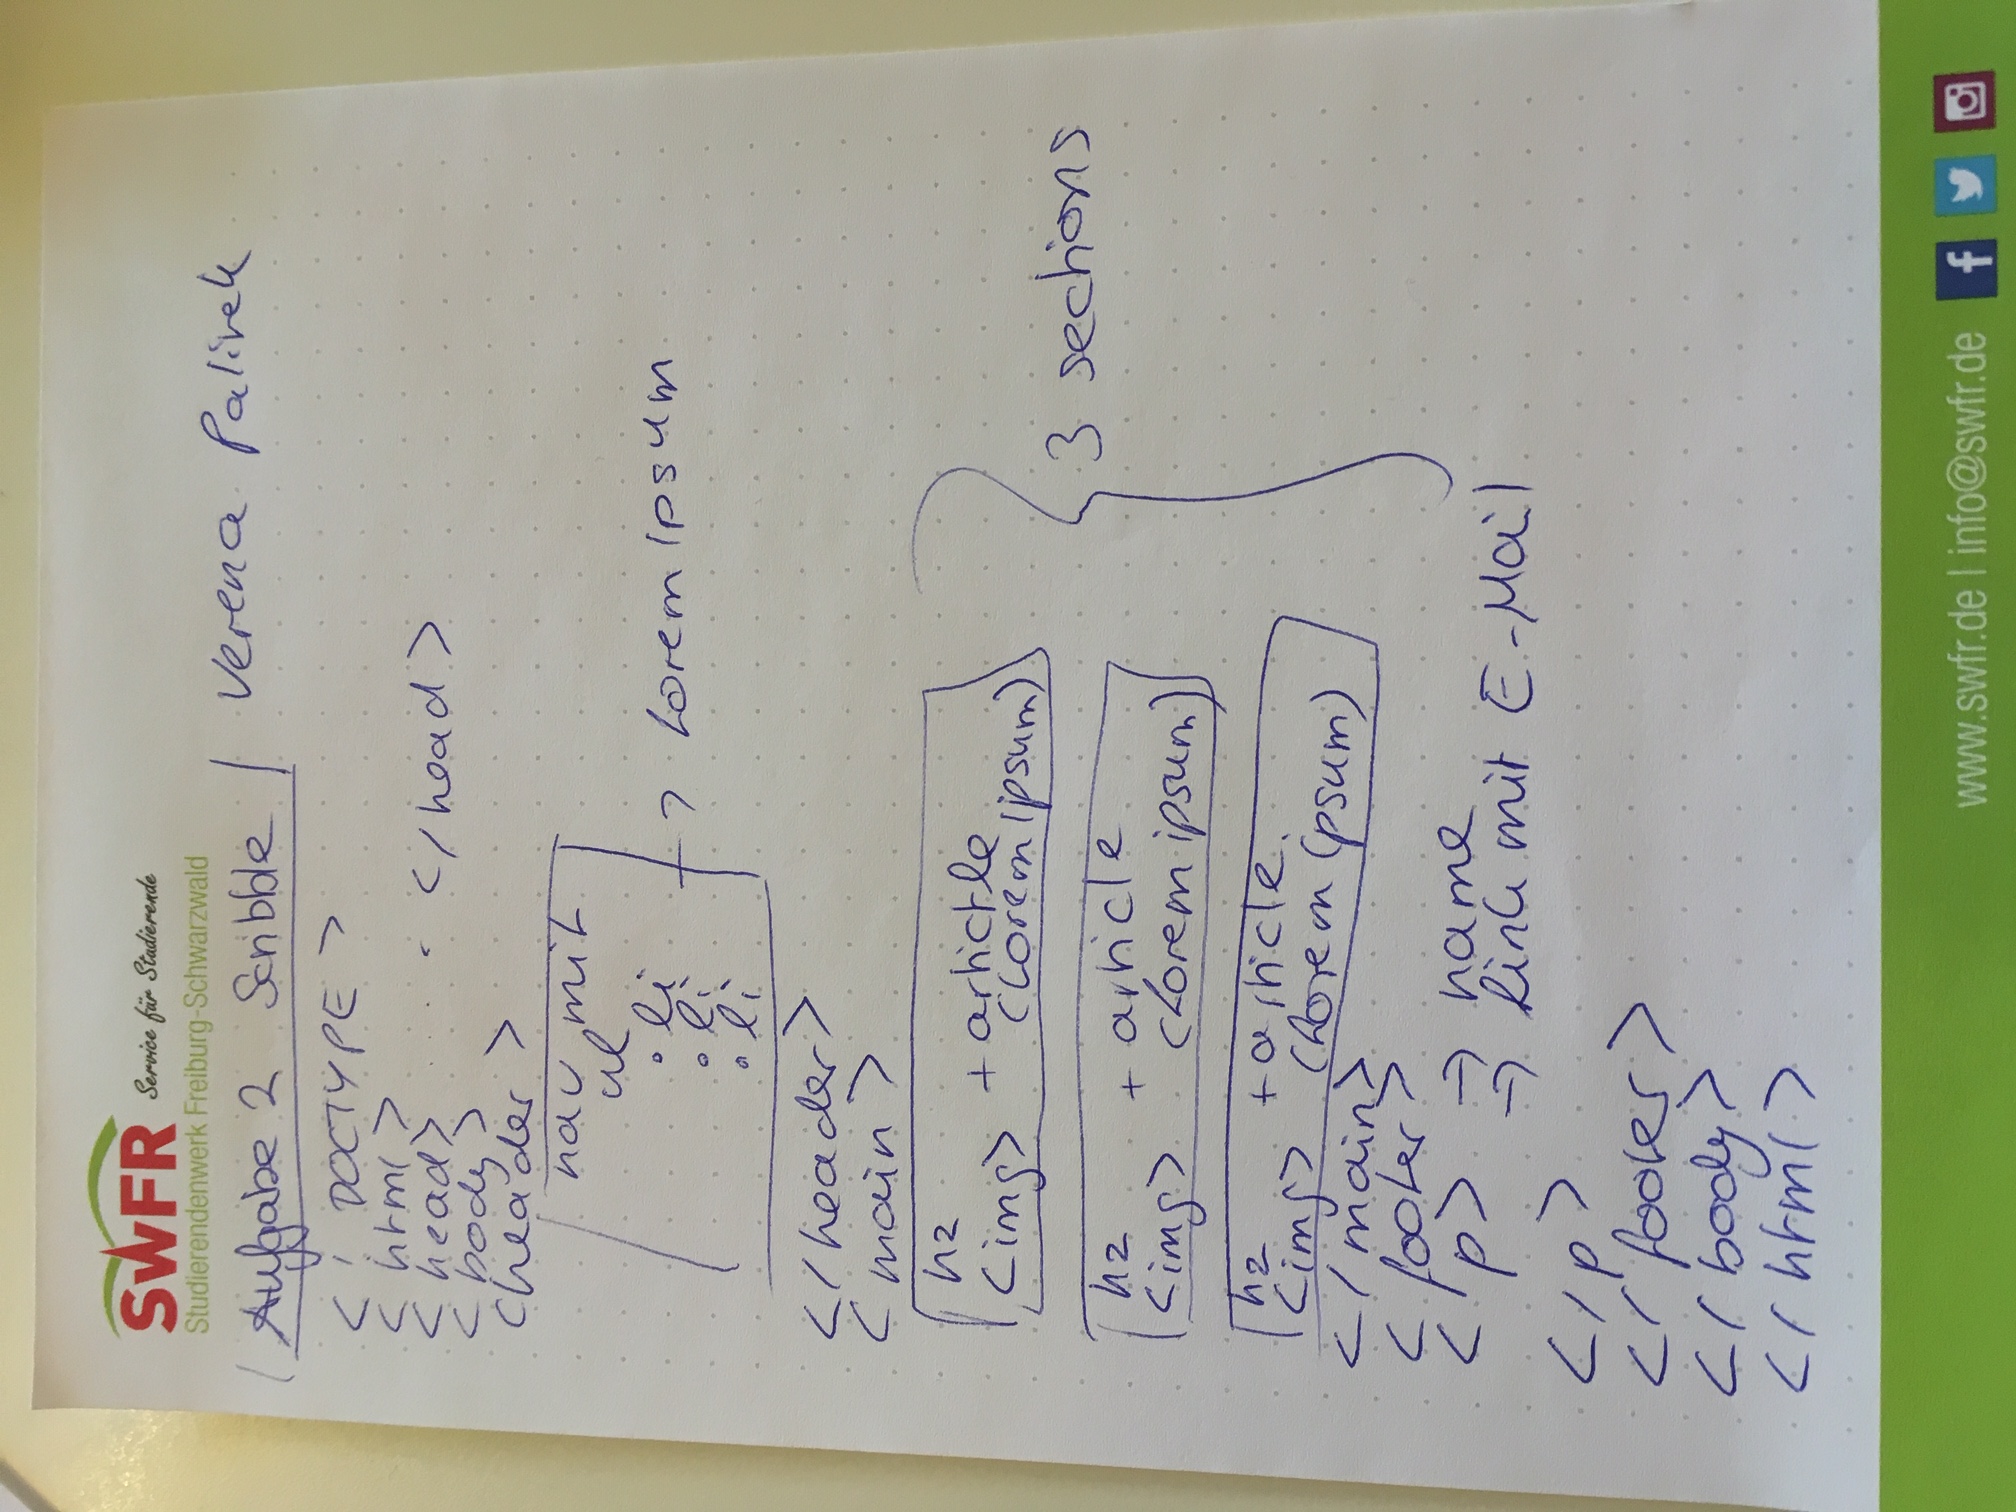 SWFR Service für Studierende
Studierendenwerk Freiburg-Schwarzwald
Aufgabe 2 Scribble | Verena Palivek
<! DOCTYPE >
<html>
<head> . . . . . </head>
<body>
<header>
nav mit
ul
• li
• li → Lorem Ipsum
• li
</header>
<main>
h2
<img> + artictle
(Lorem Ipsum)
3 sections
h2 + article
<img> (Lorem ipsum)
h2 + article.
<img> (Lorem ipsum)
</main>
<footer>
<p> → name
→ Link mit E-Mail
</p>
</footer>
</body>
</html>
www.swfr.de | info@swfr.de